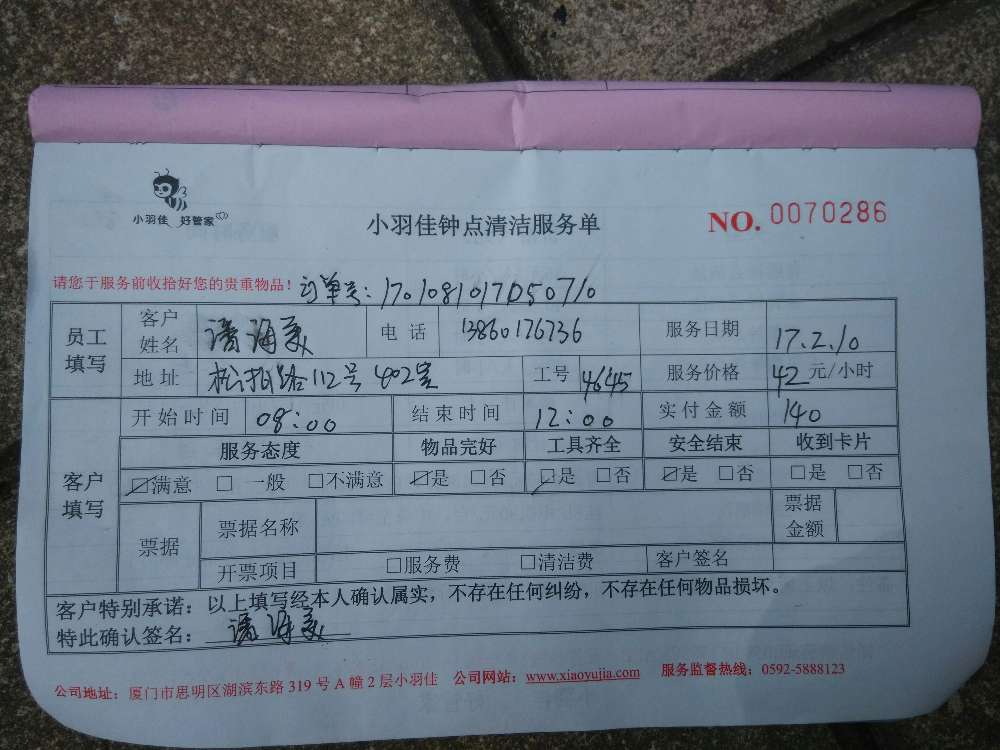 小羽佳 好管家
小羽佳钟点清洁服务单
NO. 0070286
请您于服务前收拾好您的贵重物品！ 订单号：
员工填写 客户姓名 电话 13860176736 服务日期 17.2.10
地址 112号402室 工号 4645 服务价格 42元/小时
客户填写 开始时间 08:00 结束时间 12:00 实付金额 140
服务态度 物品完好 工具齐全 安全结束 收到卡片
☑满意 □ 一般 □不满意 ☑是 □否 ☑是 □否 ☑是 □否 □是 □否
票据 票据名称 票据金额
开票项目 □服务费 □清洁费 客户签名
客户特别承诺：以上填写经本人确认属实，不存在任何纠纷，不存在任何物品损坏。
特此确认签名：
公司地址：厦门市思明区湖滨东路 319 号 A 幢 2 层小羽佳 公司网站：www.xiaoyujia.com 服务监督热线：0592-5888123